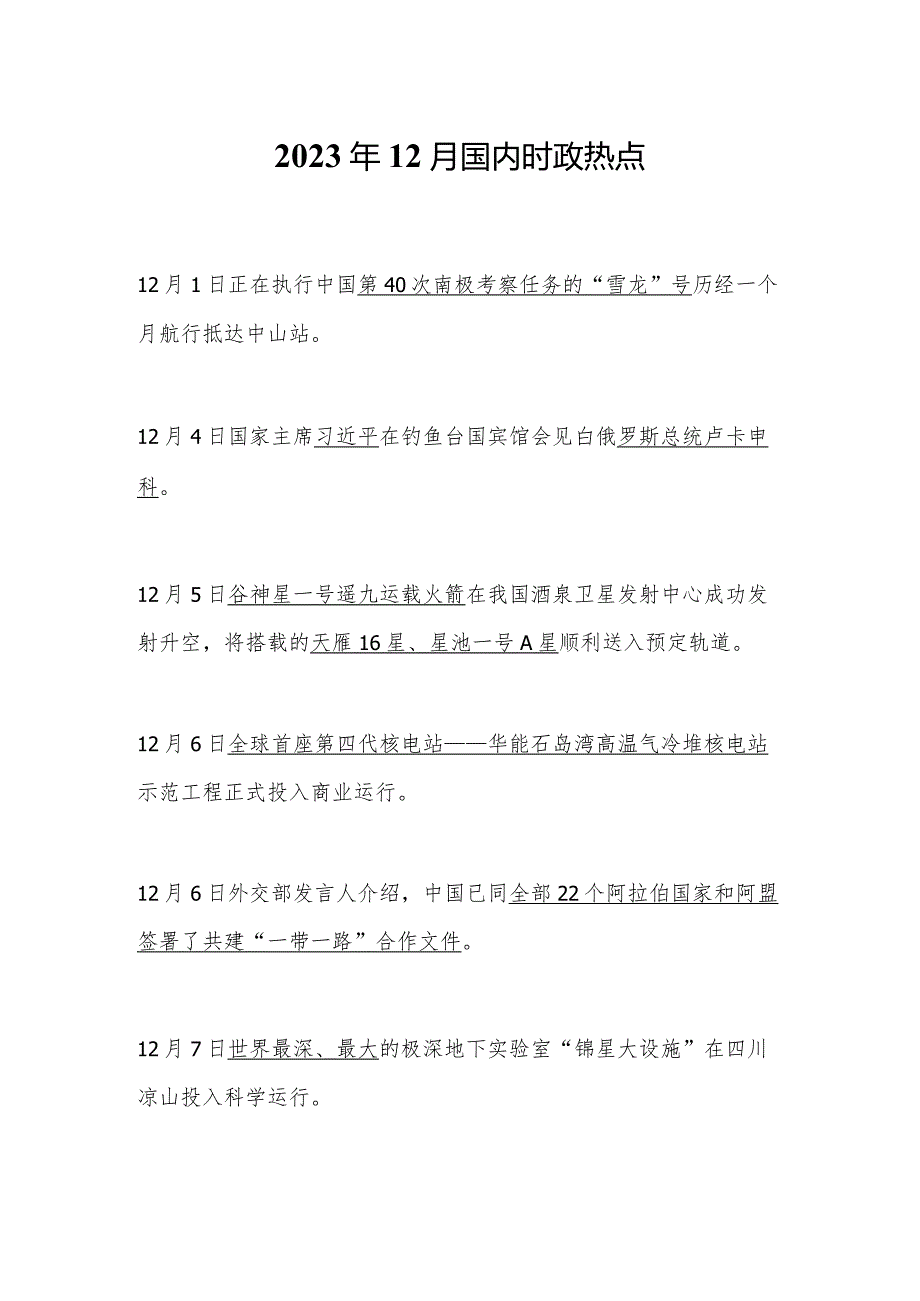 2023 年 12 月国内时政热点
12 月 1 日正在执行中国第 40 次南极考察任务的“雪龙”号历经一个
月航行抵达中山站。
12 月 4 日国家主席习近平在钓鱼台国宾馆会见白俄罗斯总统卢卡申
科。
12 月 5 日谷神星一号遥九运载火箭在我国酒泉卫星发射中心成功发
射升空，将搭载的天雁 16 星、星池一号 A 星顺利送入预定轨道。
12 月 6 日全球首座第四代核电站——华能石岛湾高温气冷堆核电站
示范工程正式投入商业运行。
12 月 6 日外交部发言人介绍，中国已同全部 22 个阿拉伯国家和阿盟
签署了共建“一带一路”合作文件。
12 月 7 日世界最深、最大的极深地下实验室“锦星大设施”在四川
凉山投入科学运行。